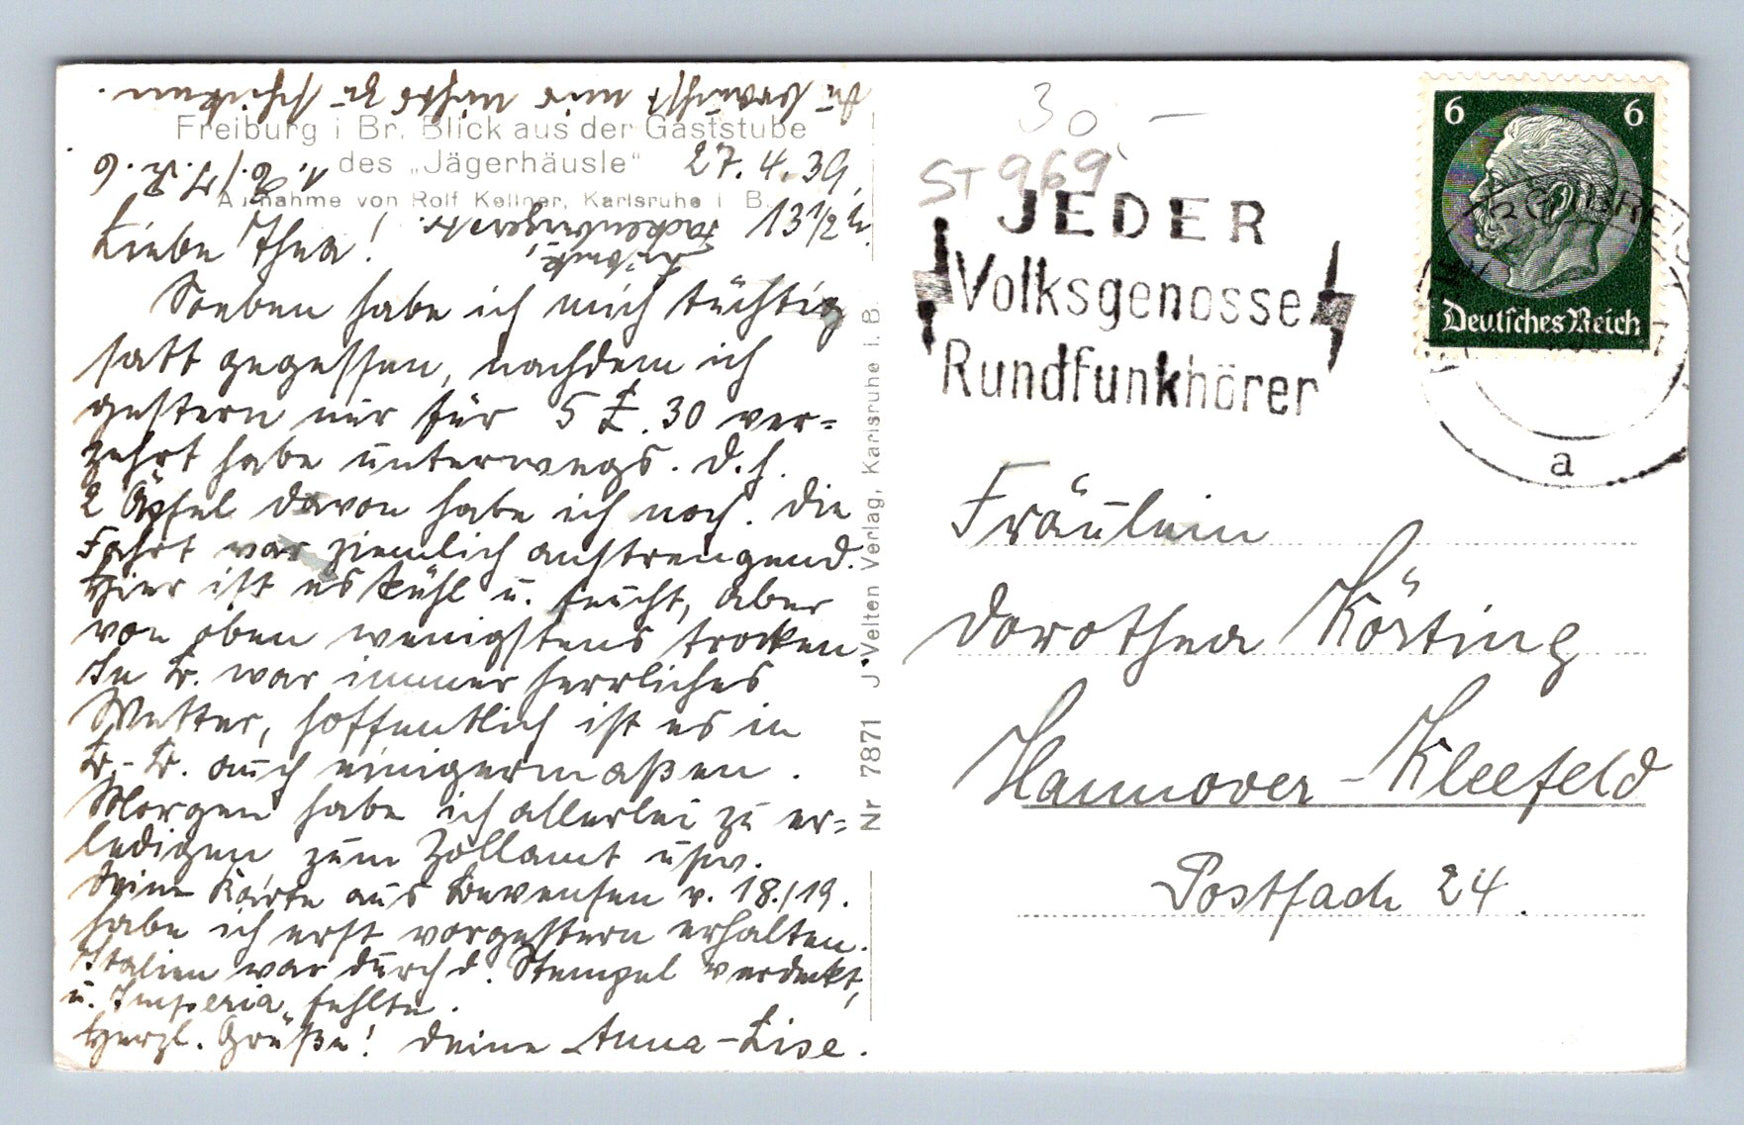 Du brauchst mir nichts zu schicken.
Freiburg i Br. Blick aus der Gaststube
des „Jägerhäusle"
Aufnahme von Rolf Kellner, Karlsruhe i B.
27. 4. 39,
13 1/2 h.
Liebe Thea!
Soeben habe ich mich tüchtig
satt gegessen, nachdem ich
gestern nur für 5 £. 30 ver=
zehrt habe unterwegs. D. h.
2 Äpfel davon habe ich noch. Die
Fahrt war ziemlich anstrengend.
Hier ist es kühl u. feucht, aber
von oben wenigstens trocken.
In B. war immer herrliches
Wetter, hoffentlich ist es in
auch einigermaßen.
Morgen habe ich allerlei zu er=
ledigen zum Zollamt usw.
Deine Karte aus Bevensen v. 18./19.
habe ich erst vorgestern erhalten.
Italien war durch d. Stempel verdeckt,
u. „Imperia" fehlte.
Herzl. Grüße! Deine Anna-Lise.
Nr 7871 J. Velten Verlag, Karlsruhe i. B.
30 –
ST 969
JEDER
Volksgenosse
Rundfunkhörer
6 6
Deutsches Reich
a
Fräulein
Dorothea Körting
Hannover-Kleefeld
Postfach 24.